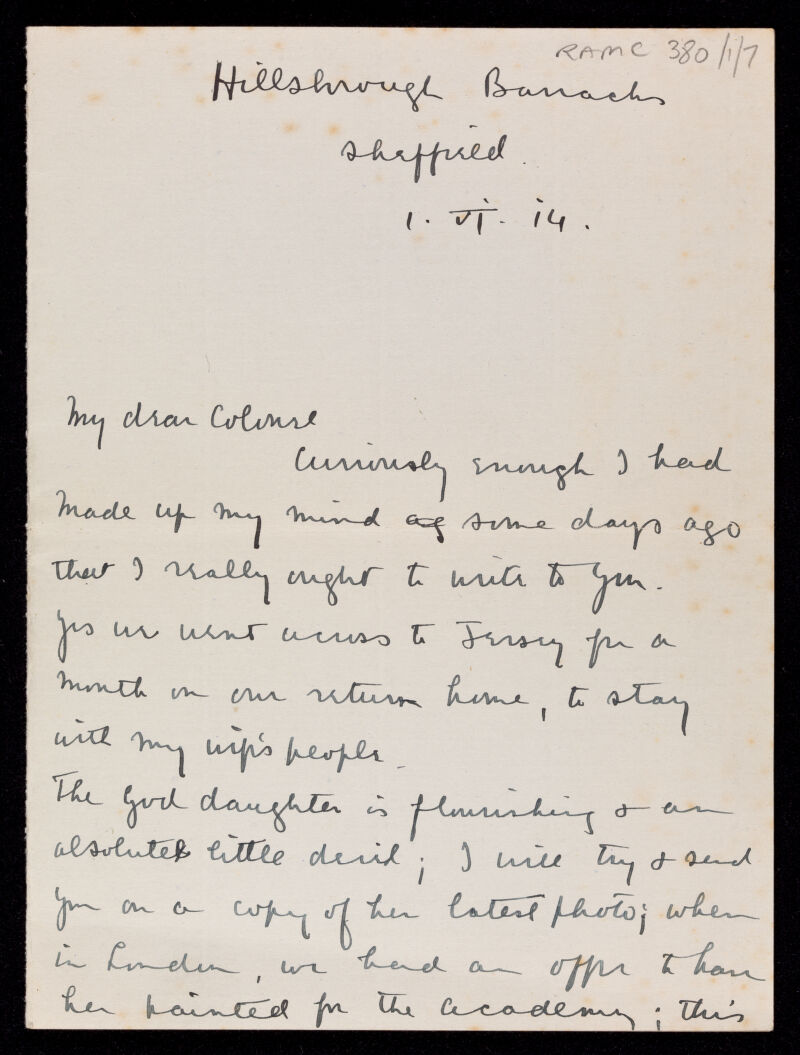 RAMC 380/1/7
Hillsbrough Barracks
Sheffield.
1. VI. 14.
My dear Colonel
Curiously enough I had
made up my mind ag some days ago
that I really ought to write to you.
Yes we went across to Jersey for a
month on our return home, to stay
with my wife's people.
The God daughter is flourishing & an
absolute little devil; I will try & send
you on a copy of her latest photo; when
in London, we had an offer to have
her painted for the Academy; this